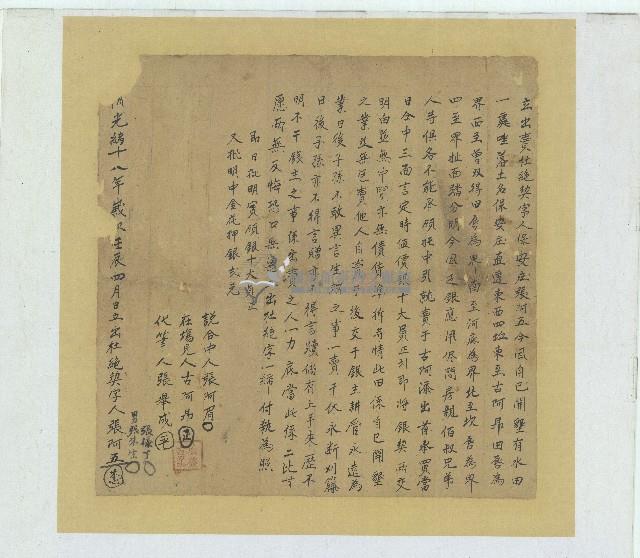 立出賣杜絕契字人保安庄張阿五今因自己開墾有水田
一處坐落土名保安庄直透東西四址東至古阿昂田為
界西至曾双得田為界南至河底為界北至坎為界
四至界址面踏分明今因乏銀應用侭問房親伯叔兄弟
人等俱各不能承領托中引就賣于古阿添出首承買當
日仝中三面言定時值價銀十大員正引即將銀契兩交
明白並無中亦無債貨準折等情此田係自己開墾
之業並無包賣他人自賣之後交于銀主耕管永遠為
業日後子孫不敢異言生端之事一賣千休永斷刈籐
日後子孫亦不得言贈亦不得言贖倘有上手來歷不
明不干錢主之事係出賣之人一力底當此係二比甘
愿兩無反悔恐口無憑出杜絕字一紙付執為照
即日批明實領銀十大員正
又批明中金花押銀玄元
說合中人張阿眉
在場見人古阿昂
代筆人張舉成
光緒十八年歲次壬辰四月日立出杜絕契字人張阿五